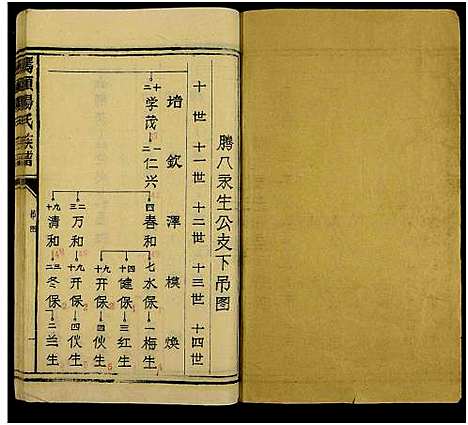 腾八永生公支下吊图
十世 十一世 十二世 十三世 十四世
培 钦 泽 模 焕
十二 学茂
一二 仁兴
四 春和
七 水保 一 梅生
十四 健保 三 红生
十九 开保 四 伙生
二三 万和
十九 开保 四 伙生
十九 清和
二三 冬保 二 兰生
杨氏族谱